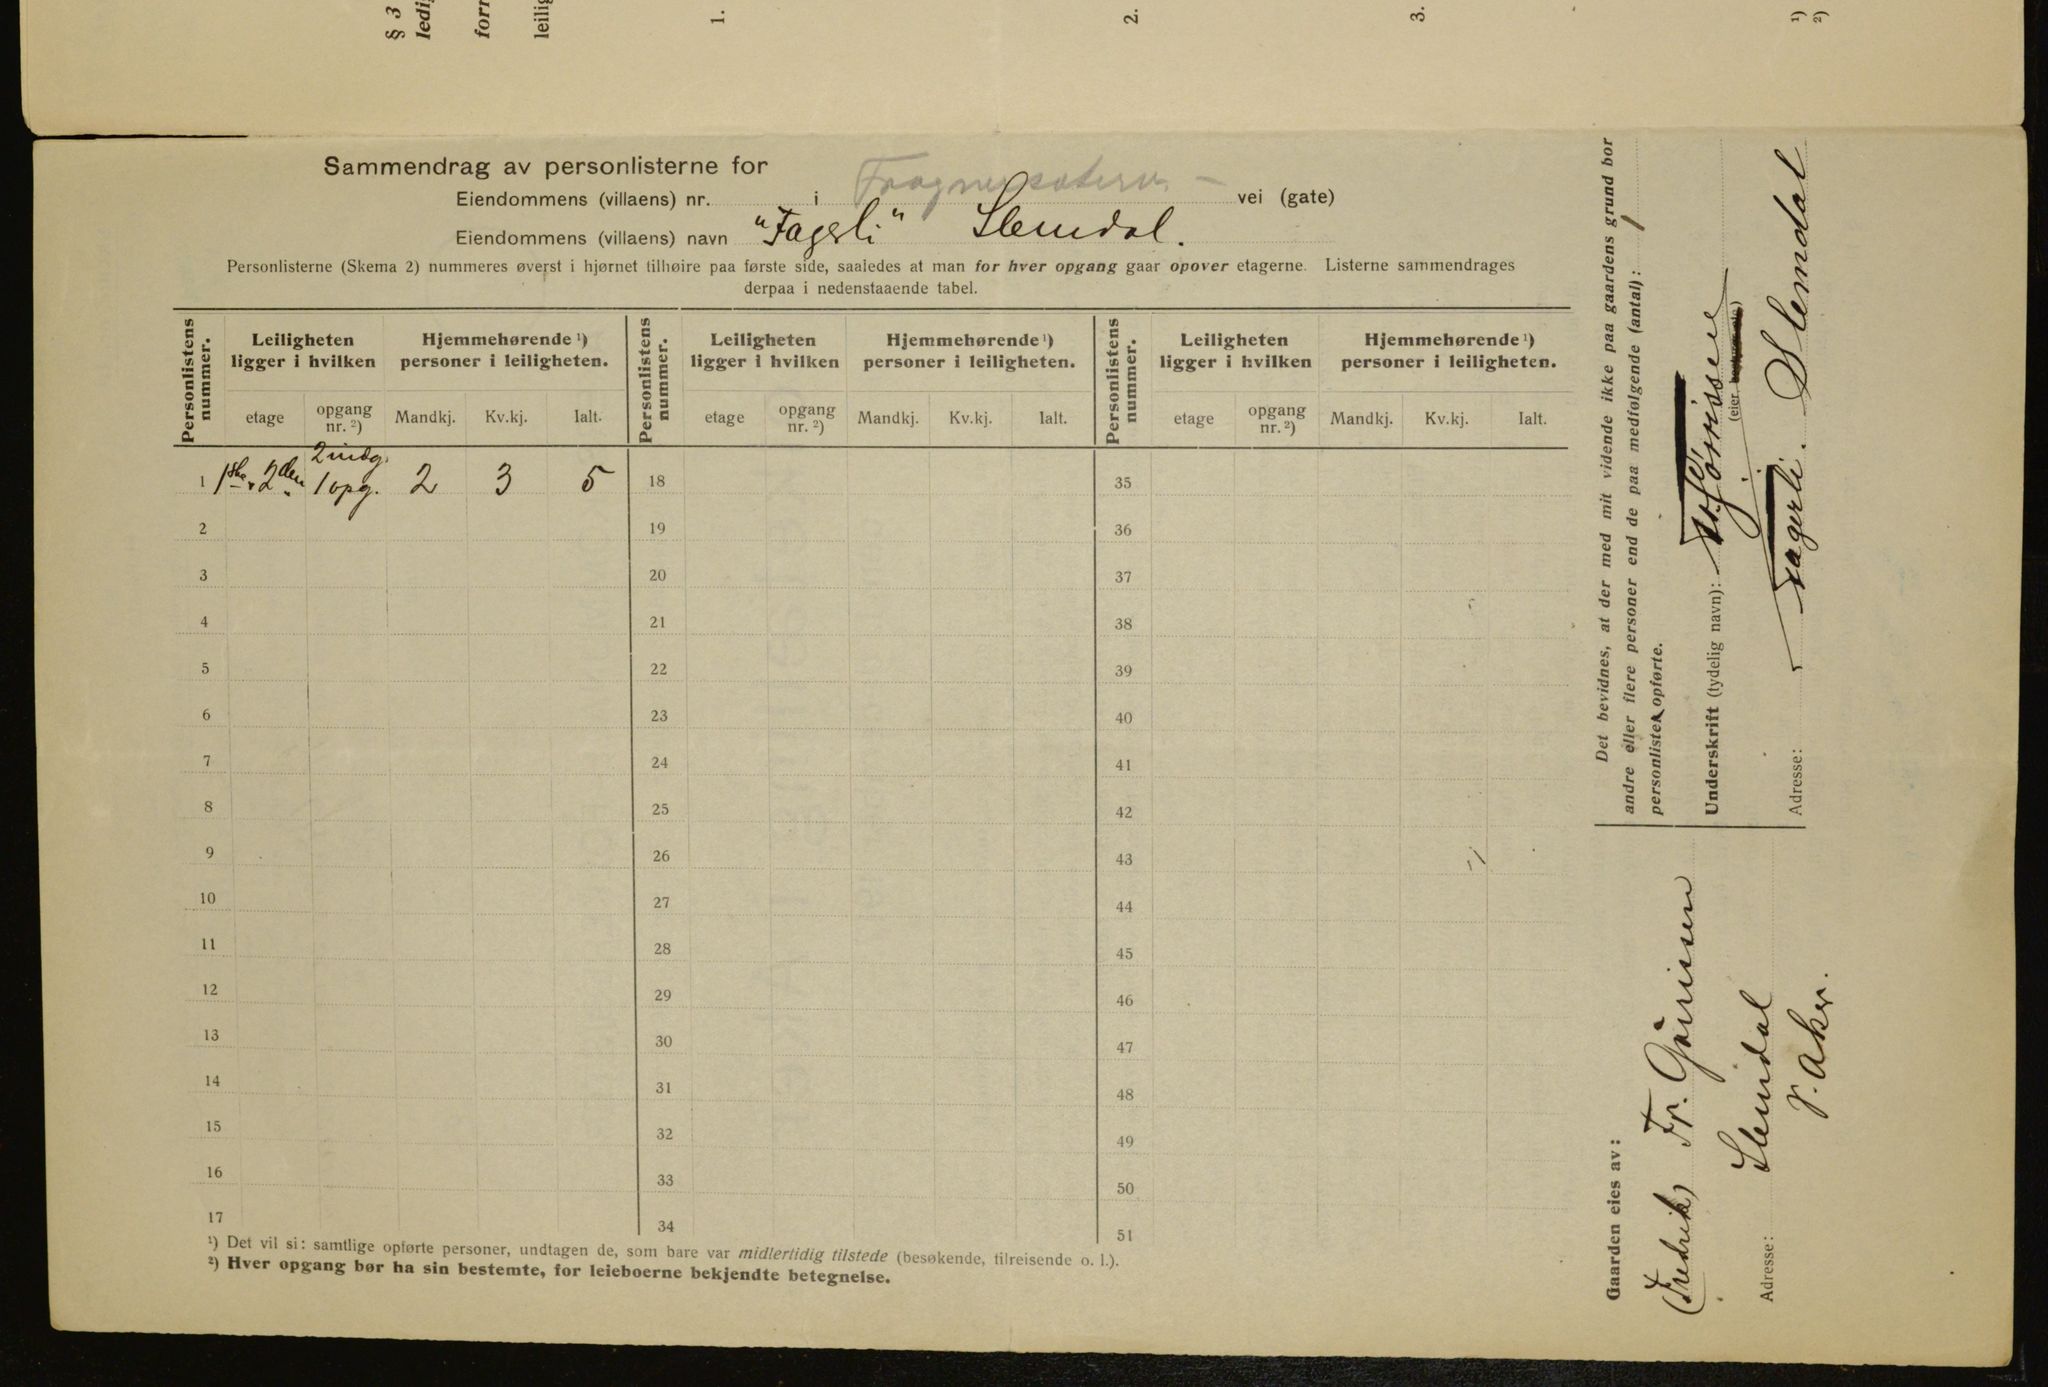 § 3
ledi
forr
leilig
1.
2.
3.
¹)
²)
Sammendrag av personlisterne for
Eiendommens (villaens) nr. i vei (gate)
Eiendommens (villaens) navn "Fagerli" Slemdal.
Personlisterne (Skema 2) nummeres øverst i hjørnet tilhøire paa første side, saaledes at man for hver opgang gaar opover etagerne. Listerne sammendrages
derpaa i nedenstaaende tabel.
Personlistens nummer. Leiligheten ligger i hvilken Hjemmehørende ¹) personer i leiligheten. Personlistens nummer. Leiligheten ligger i hvilken Hjemmehørende ¹) personer i leiligheten. Personlistens nummer. Leiligheten ligger i hvilken Hjemmehørende ¹) personer i leiligheten.
etage opgang nr. ²) Mandkj. Kv.kj. Ialt. etage opgang nr. ²) Mandkj. Kv.kj. Ialt. etage opgang nr. ²) Mandkj. Kv.kj. Ialt.
2 indg.
1 1ste 2den 1 opg. 2 3 5 18 35
2 19 36
3 20 37
4 21 38
5 22 39
6 23 40
7 24 41
8 25 42
9 26 43
10 27 44
11 28 45
12 29 46
13 30 47
14 31 48
15 32 49
16 33 50
17 34 51
¹) Det vil si: samtlige opførte personer, undtagen de, som bare var midlertidig tilstede (besøkende, tilreisende o. l.).
²) Hver opgang bør ha sin bestemte, for leieboerne bekjendte betegnelse.
Gaarden eies av:
(Fredrik) Fr. Görrissen
Adresse: Slemdal
V. Aker.
Det bevidnes, at der med mit vidende ikke paa gaardens grund bor
andre eller flere personer end de paa medfølgende (antal): 1
personlister opførte.
Underskrift (tydelig navn): Fr. Görrissen
(eier bestyrer)
Adresse: Fagerli. Slemdal